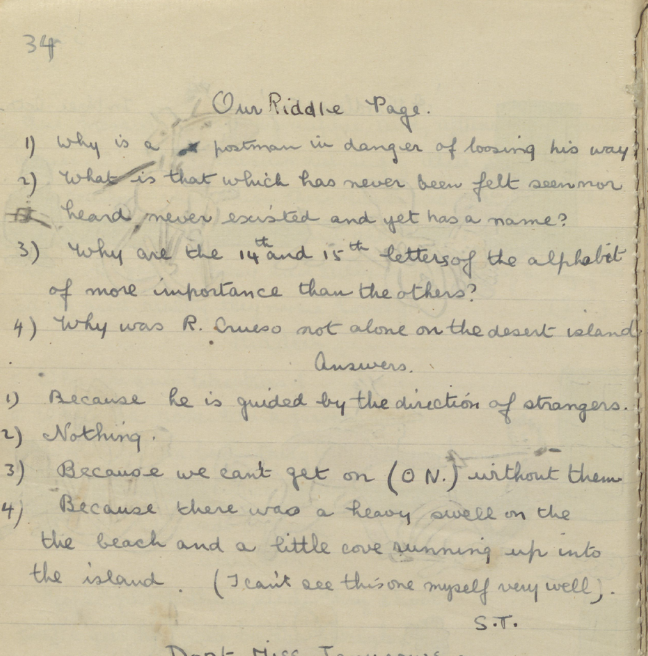 34
Our Riddle Page.
1) Why is a postman in danger of loosing his way
2) What is that which has never been felt seen nor
heard never existed and yet has a name?
3) Why are the 14th and 15th letters of the alphabet
of more importance than the others?
4) Why was R. Crueso not alone on the desert island
Answers.
1) Because he is guided by the direction of strangers.
2) Nothing.
3) Because we can't get on (O N.) without them
4) Because there was a heavy swell on the
the beach and a little cove running up into
the island. (I can't see this one myself very well).
S.T.
Miss